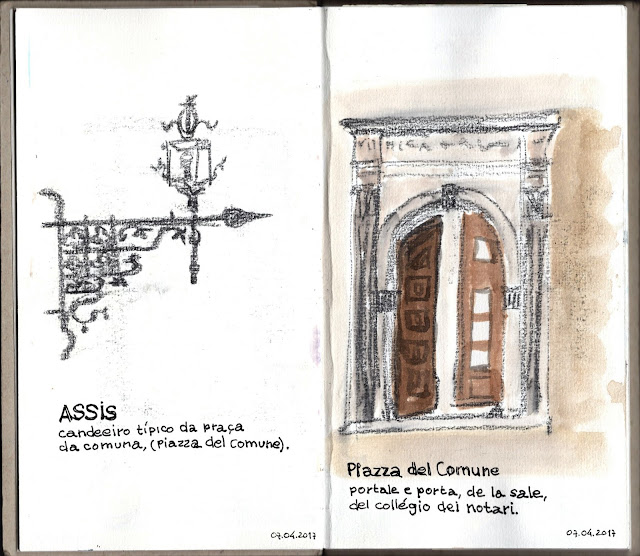 ASSIS
candeeiro típico da praça
da comuna, (Piazza del Comune).
07.04.2017
Piazza del Comune
portale e porta, de la sale,
del collégio dei notari.
07.04.2017